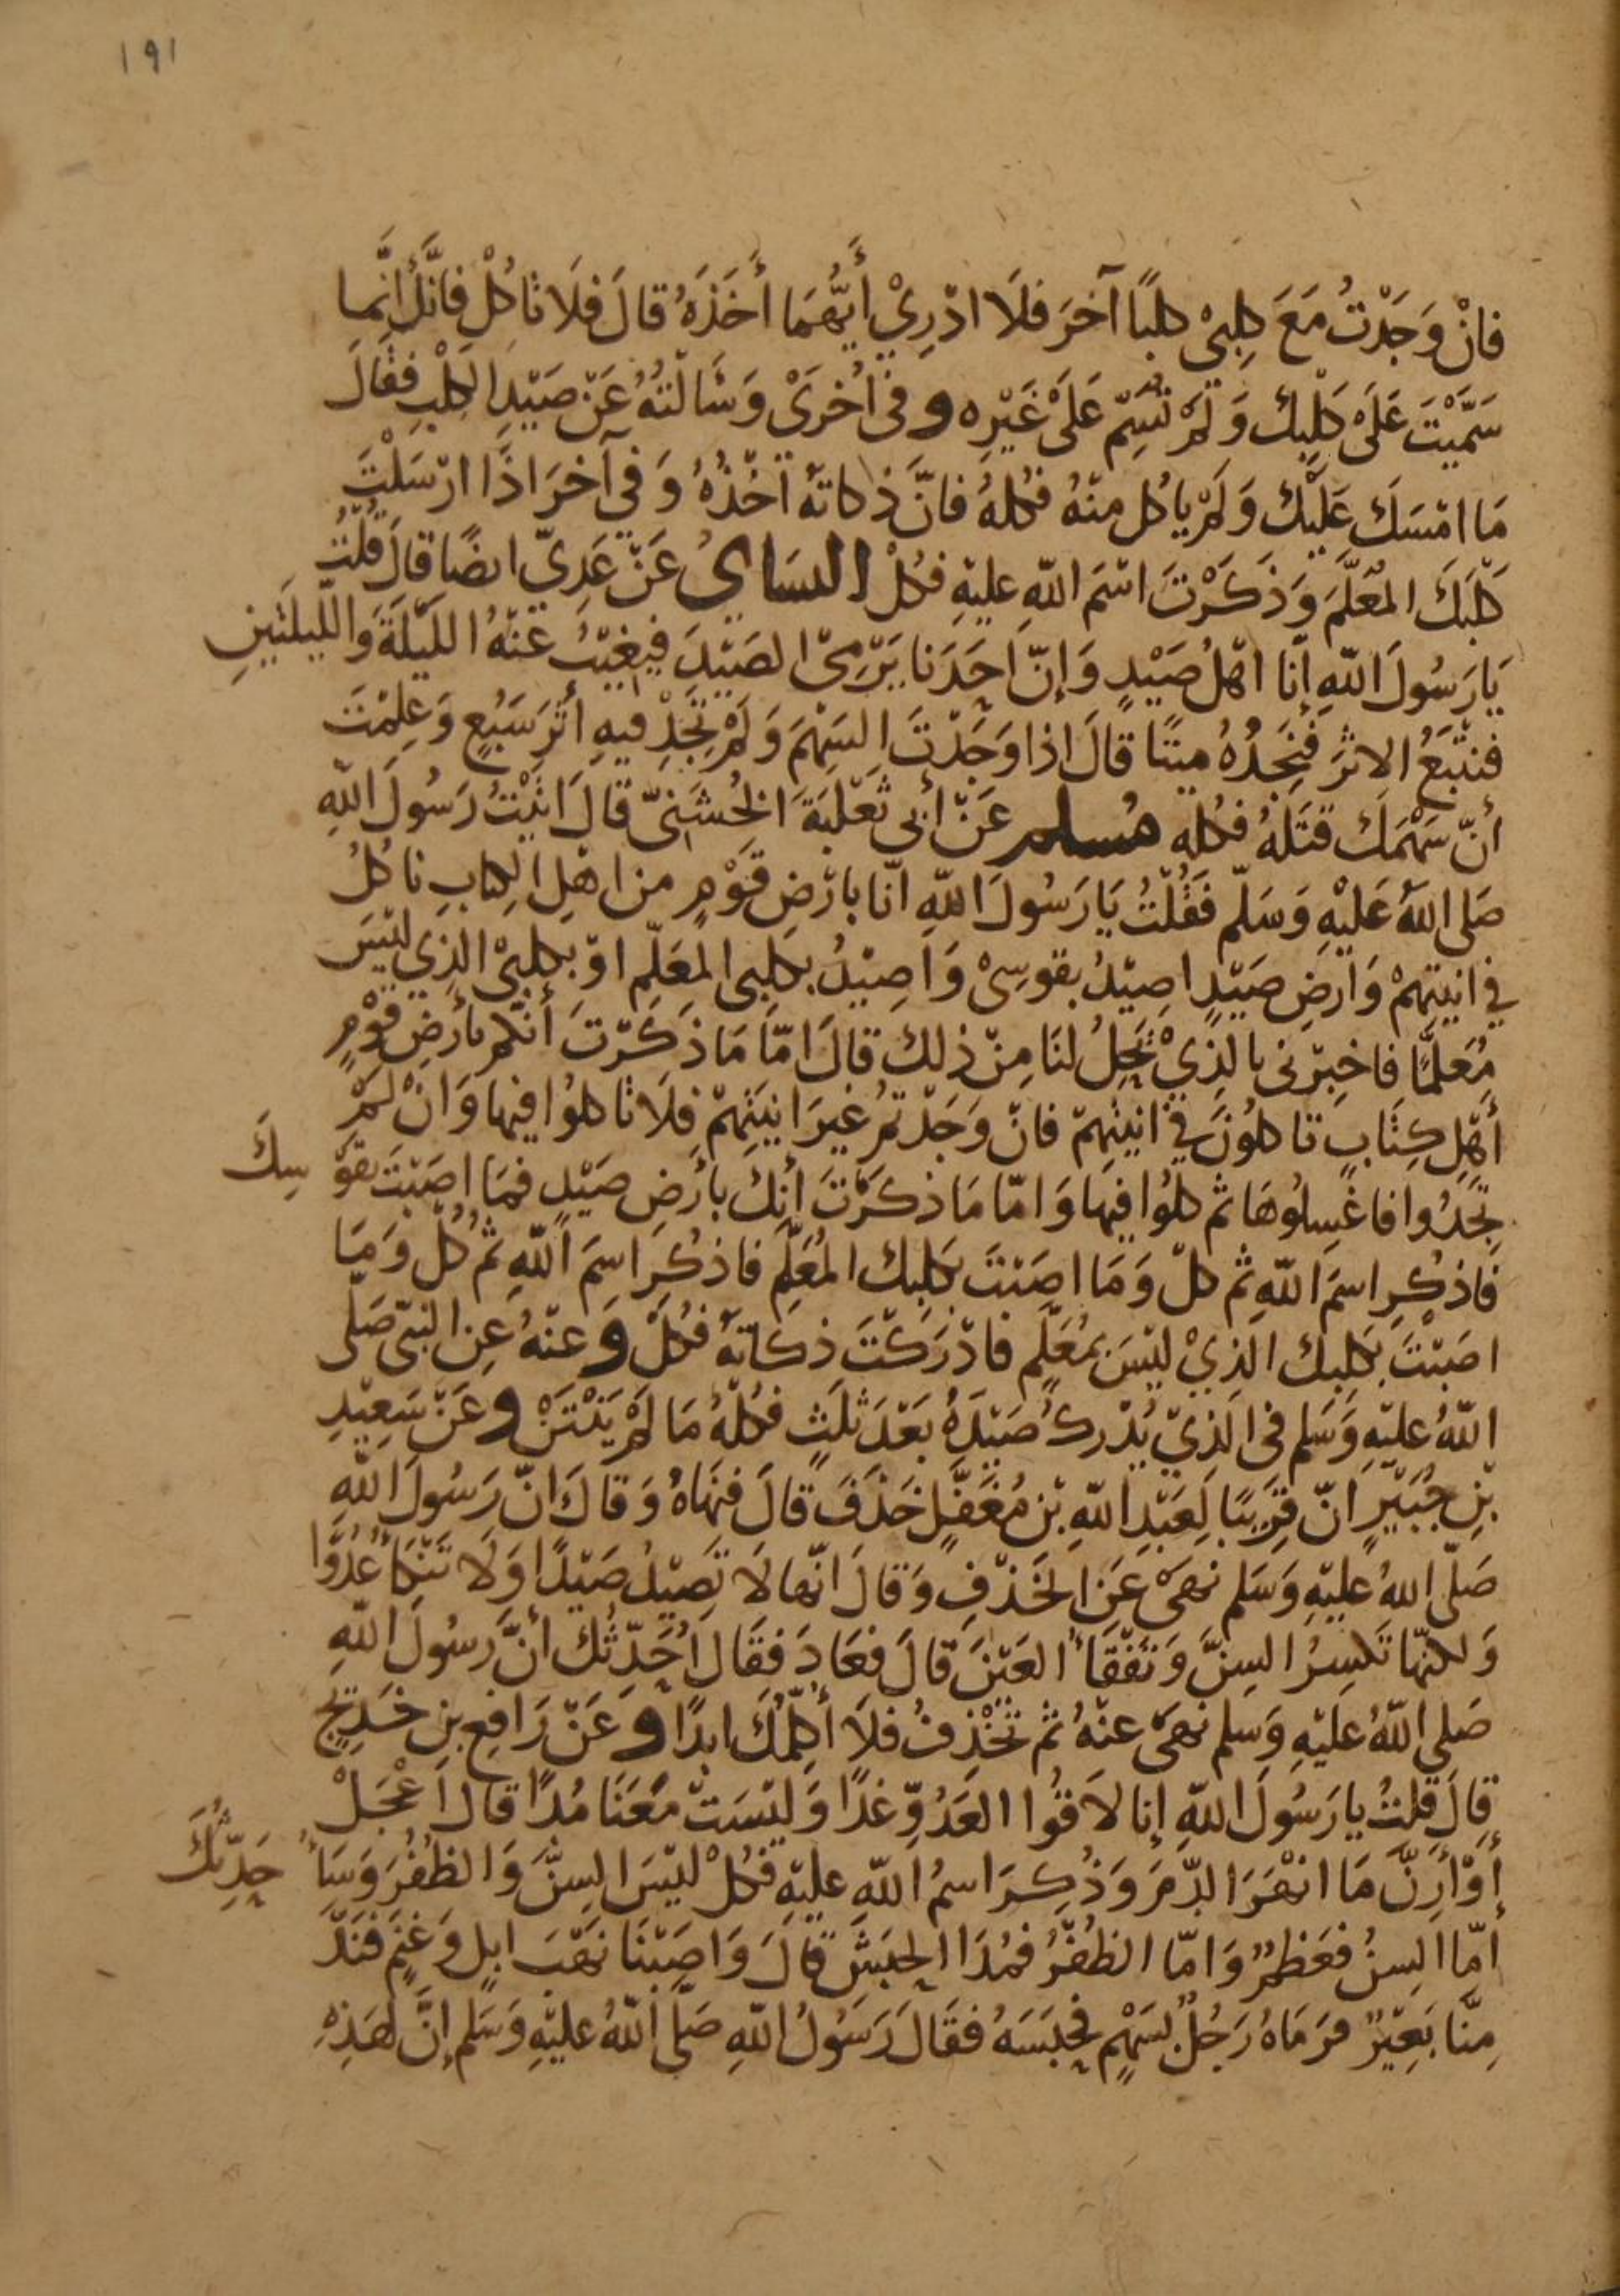 ١٩١
فانْ وَجَدْتُ مَعَ كلبِىْ كلبًا آخرَ فلَا ادْرِيْ أَيُّهُمَا أَخَذَهُ قالَ فلَا تاكُلْ فانَّكَ إنَّما
سَمَّيْتَ عَلَىْ كَلْبِك وَلَمْ تُسَمِّ عَلَىْ غَيْرِه و فى اُخرَىْ وَسَالْتُهُ عَنْ صَيْدِ الكلْبِ فقَالَ
مَا امْسَكَ عَلَيْك وَلَمْ ياكُل منْهُ فكلهُ فانَّ ذكاتهُ أخْذُهُ وَفي آخرَ اذَا ارْسَلْتَ
كَلْبَكَ المُعَلَّمَ وَذَكَرْتَ اسْمَ اللهِ عليْهِ فكُلْ النسَائيُ عَنْ عَدِيّ ايضًا قالَ قُلْتُ
يَا رَسُولَ اللهِ إنا اهْلُ صَيْدٍ وَإنّ احَدَنا يَرْمِىْ الصَيْدَ فيغيْبُ عَنْهُ اللَيْلَةَ وَالليلَتَيْنِ
فنتْبَعُ الاثرَ فَنَجِدُهُ ميتًا قالَ اذا وَجَدْتَ السَهْمَ وَلَمْ تَجِدْ فيهِ أثَرَ سَبُعٍ وَعلِمْتَ
أنّ سَهْمَك قتَلهُ فكله مُسلم عَنْ أبى ثعْلَبَةَ الخُشَنىّ قالَ اتيْتُ رَسُولَ اللهِ
صَلى اللهُ عَليْهِ وَسَلّم فَقُلْتُ يَا رَسُولَ اللهِ انّا بارْضِ قَوْمٍ من اهْلِ الكتابِ ناكلُ
في انيتِهمْ وَارضِ صَيْدٍ اصِيْدُ بقوسِىْ وَاصِيْدُ بكلبى المعَلّمِ اوْ بكلبىْ الذِي ليْسَ
مُعَلمًّا فاخبرْنى بالذِيْ يَحِلُ لنَا مِنْ ذلك قالَ امّا مَا ذكَرْتَ أنكُم بأرْضِ قوْمٍ
أهْلِ كتَابٍ تاكلُونَ في انيتِهمْ فانْ وَجَدْتمْ غيرَ انيَتِهمْ فلَا تاكلوُا فيها وَانْ لمْ
تَجدُوا فاغْسِلوُهَا ثم كلوُا فيها وَامّا مَا ذكَرْتَ أنك بأرْضِ صَيْدٍ فمَا اصَبْتَ بقوْ سِكَ
فاذكُرِ اسمَ اللهِ ثم كلْ وَمَا اصَبْتَ بكَلبِك المُعَلّمِ فاذكُرِ اسمَ اللهِ ثم كُلْ وَمَا
اصَبْتَ بكَلبِك الذِيْ ليْسَ بمُعَلّمٍ فادْرَكْتَ ذكَاتهُ فكُلْ و عنْهُ عِن النبىّ صَلّى
اللهُ عليْهِ وَسَلم فى الَذِيْ يُدْركُ صَيْدَهُ بَعْدَ ثلَثٍ فكُلهُ مَا لَمْ يَنْتَنْ و عَنْ سَعِيْدِ
بْنِ جُبَيْرٍ انّ قَرِيبًا لِعَبْدِ اللهِ بْنِ مُغَفَّلٍ خَذَفَ قالَ فنَهَاهُ وَقالَ انّ رَسُولَ اللهِ
صَلّى اللهُ عليْهِ وَسَلم نهَىْ عَنِ الخَذْفِ وَقالَ انّها لَا تَصِيْدُ صَيْدًا وَلَا تَنْكَأُ عَدُوًّا
وَلكنّها تَكسِرُ السِنَّ وَتَفْقَأُ العَيْنَ قالَ فعَادَ فقَالَ اُحَدِّثُك أنَّ رَسُولَ اللهِ
صَلى اللهُ عليْهِ وَسلم نهَىْ عنْهُ ثم تخْذِفُ فلَا أكلِّمُك ابدًا و عَنْ رَافعِ بنِ خَدِيْجٍ
قالَ قلتُ يا رَسُولَ اللهِ إنا لَاقُوا العَدُوِّ غدًا وَليْسَتْ مَعَنَا مُدًا قالَ اَعْجَلْ
أوْ أَرِنَّ مَا انْهَرَ الدّمَ وَذُكِرَ اسمُ اللهِ عليْهِ فكُلْ ليْسَ السِنَّ وَالظفُرَ وَسَأُ حَدِّثُكَ
أمّا السِنُ فعَظمٌ وَامّا الظفُرُ فمُدَا الحَبَشَ قالَ وَاصَبْنَا نَهْبَ ابلٍ وَغنَمٍ فنَدَّ
مِنَّا بَعِيْرٌ فرَمَاهُ رَجُلٌ بسَهْمٍ فحَبَسَهُ فقَالَ رَسُولُ اللهِ صَلّى اللهُ عليْهِ وَسَلم إنَّ لهَذِهِ